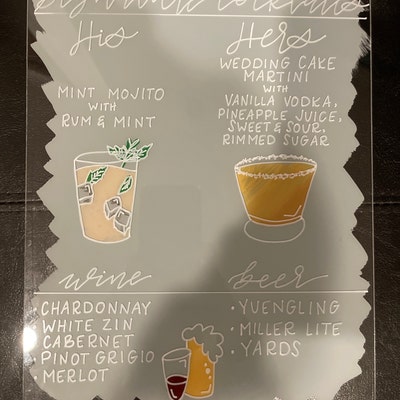 Signature Cocktails
His
Hers
MINT MOJITO
WITH
RUM & MINT
WEDDING CAKE
MARTINI
WITH
VANILLA VODKA,
PINEAPPLE JUICE,
SWEET & SOUR,
RIMMED SUGAR
wine
beer
• CHARDONNAY
• WHITE ZIN
• CABERNET
• PINOT GRIGIO
• MERLOT
• YUENGLING
• MILLER LITE
• YARDS